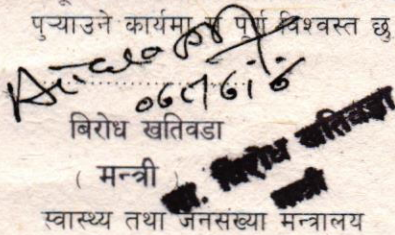 पुऱ्याउने कार्यमा म पूर्ण विश्वस्त छु
बिरोध खतिवडा
( मन्त्री )
मा. बिरोध खतिवडा
मन्त्री
स्वास्थ्य तथा जनसंख्या मन्त्रालय